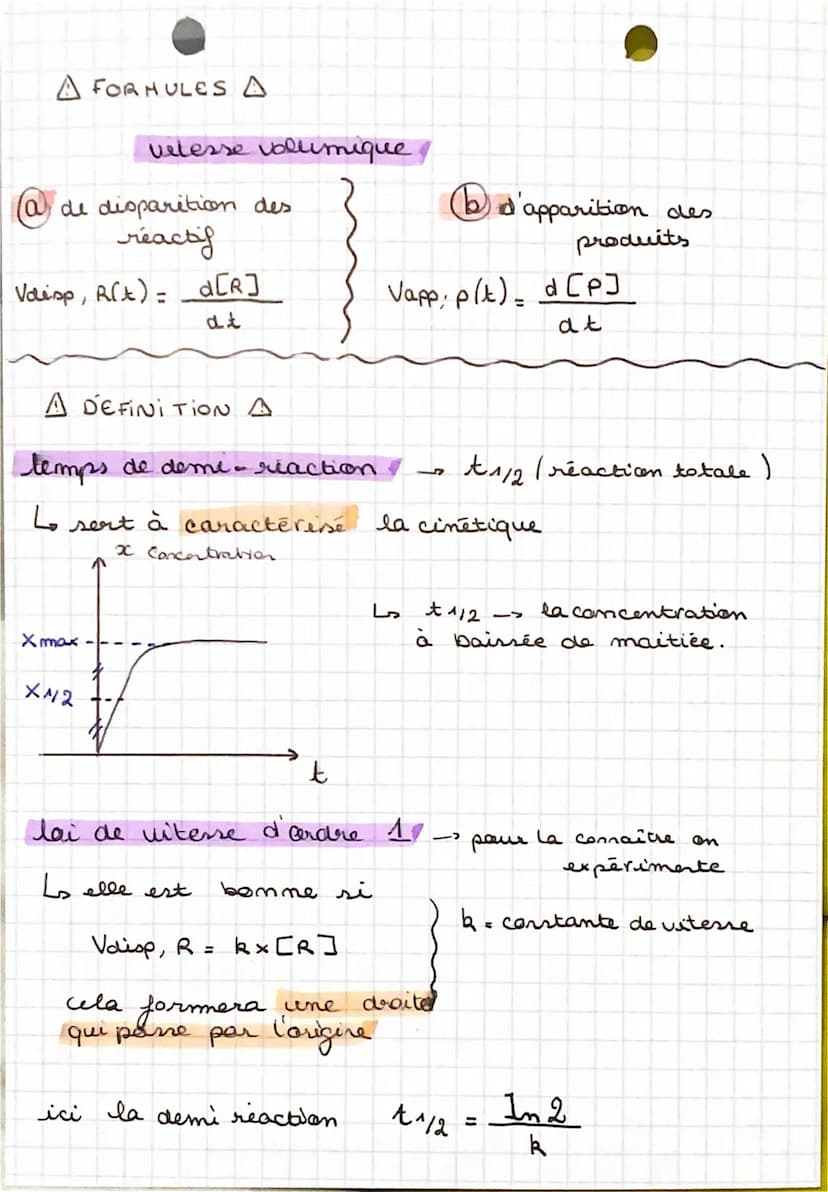 ⚠ FORMULES ⚠
vitesse volumique
(a) de disparition des
réactif
Vdisp, R(t) = d[R]/dt
(b) d'apparition des
produits
Vapp; p(t) = d[P]/dt
⚠ DÉFINITION ⚠
temps de demi-réaction → t1/2 (réaction totale)
↳ sert à caractérisé la cinétique
x concentration
Xmax
X1/2
t
↳ t1/2 → la concentration
à baissée de maitiée.
loi de vitesse d'ordre 1 → pour la connaître on
expérimente
↳ elle est bonne si
Vdisp, R = k×[R]
k = constante de vitesse
cela formera une droite
qui passe par l'origine
ici la demi réaction t1/2 = ln2/k